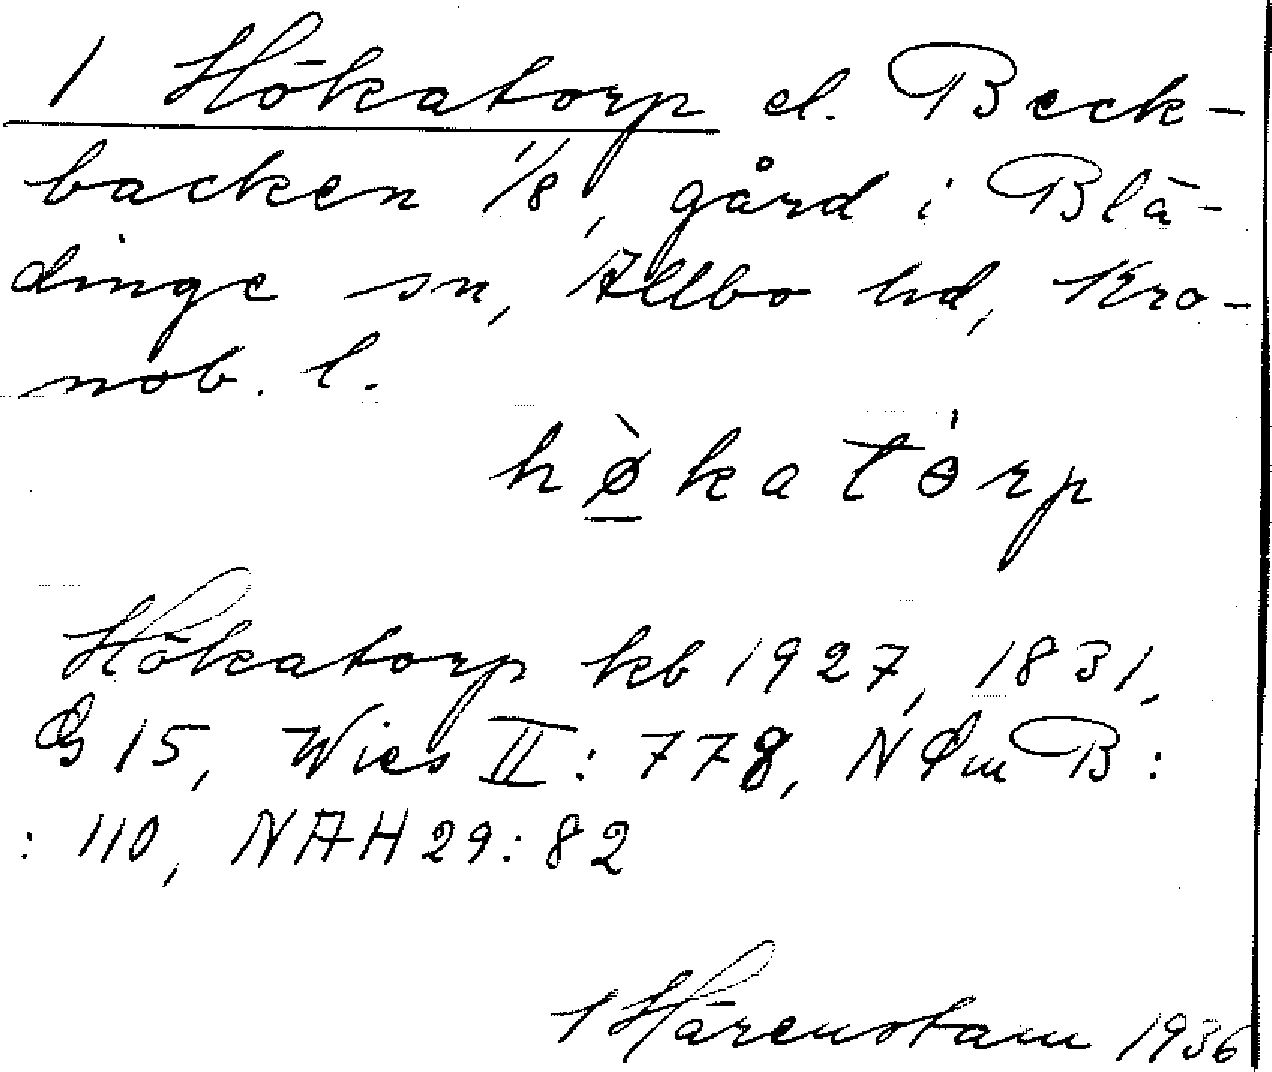 1 Hökatorp el. Beck-
backen 1/8, gård i Blä-
dinge sn, Allbo hd, Kro-
nob. l.
hø̀katòrp
Hökatorp kb 1927, 1831,
G 15, Wies II: 778, NOmB:
: 110, NAH 29: 82
Härenstam 1936